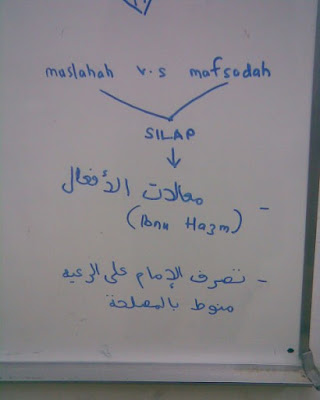 maslahah v.s mafsadah
SILAP
معالات الأفعال -
(Ibnu Hazm)
- تصرف الإمام على الرعية
منوط بالمصلحة